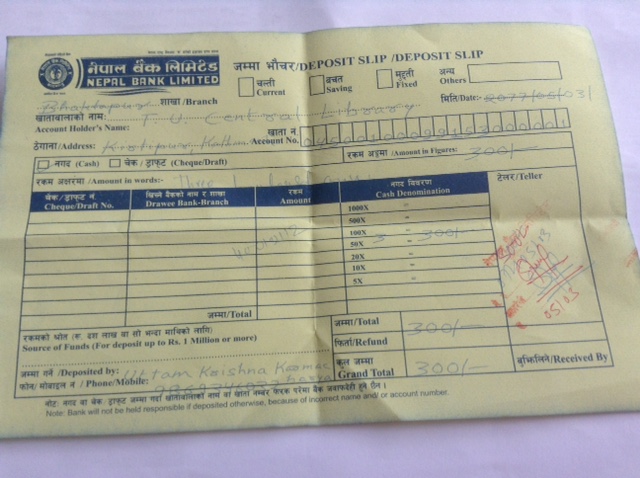 नेपाल बैंक लिमिटेड
NEPAL BANK LIMITED
जम्मा भौचर/DEPOSIT SLIP /DEPOSIT SLIP
चल्ती Current
बचत Saving
मुद्दती Fixed
अन्य Others
Bhaktapur शाखा/Branch
मिति/Date:- 2077/05/03
खातावालाको नाम: T U Central Library
Account Holder's Name:
खाता नं Account No.
ठेगाना/Address: Kirtipur, Kathm
नगद (Cash)
चेक / ड्राफ्ट (Cheque/Draft)
रकम अङ्कमा /Amount in Figures: 300/-
रकम अक्षरमा /Amount in words:- Three
चेक/ड्राफ्ट नं. Cheque/Draft No.
खिच्ने बैंकको नाम र शाखा Drawee Bank-Branch
रकम Amount
नगद विवरण Cash Denomination
टेलर/Teller
1000X "
500X "
100X 3 " 300/-
50X "
20X "
10X "
5X "
जम्मा/Total
जम्मा/Total 300/-
रकमको श्रोत (रु. दश लाख वा सो भन्दा माथिको लागि)
Source of Funds (For deposit up to Rs. 1 Million or more)
फिर्ता/Refund
जम्मा गर्ने /Deposited by: Uttam Krishna
कूल जम्मा Grand Total 300/-
बुझिलिने/Received By
फोन/ मोबाइल नं / Phone/Mobile:
नोट: नगद वा चेक, ड्राफ्ट जम्मा गर्दा खातावालाको नाम वा खाता नम्बर फरक परेमा बैंक जवाफदेही हुने छैन।
Note: Bank will not be held responsible if deposited otherwise, because of incorrect name and/ or account number.